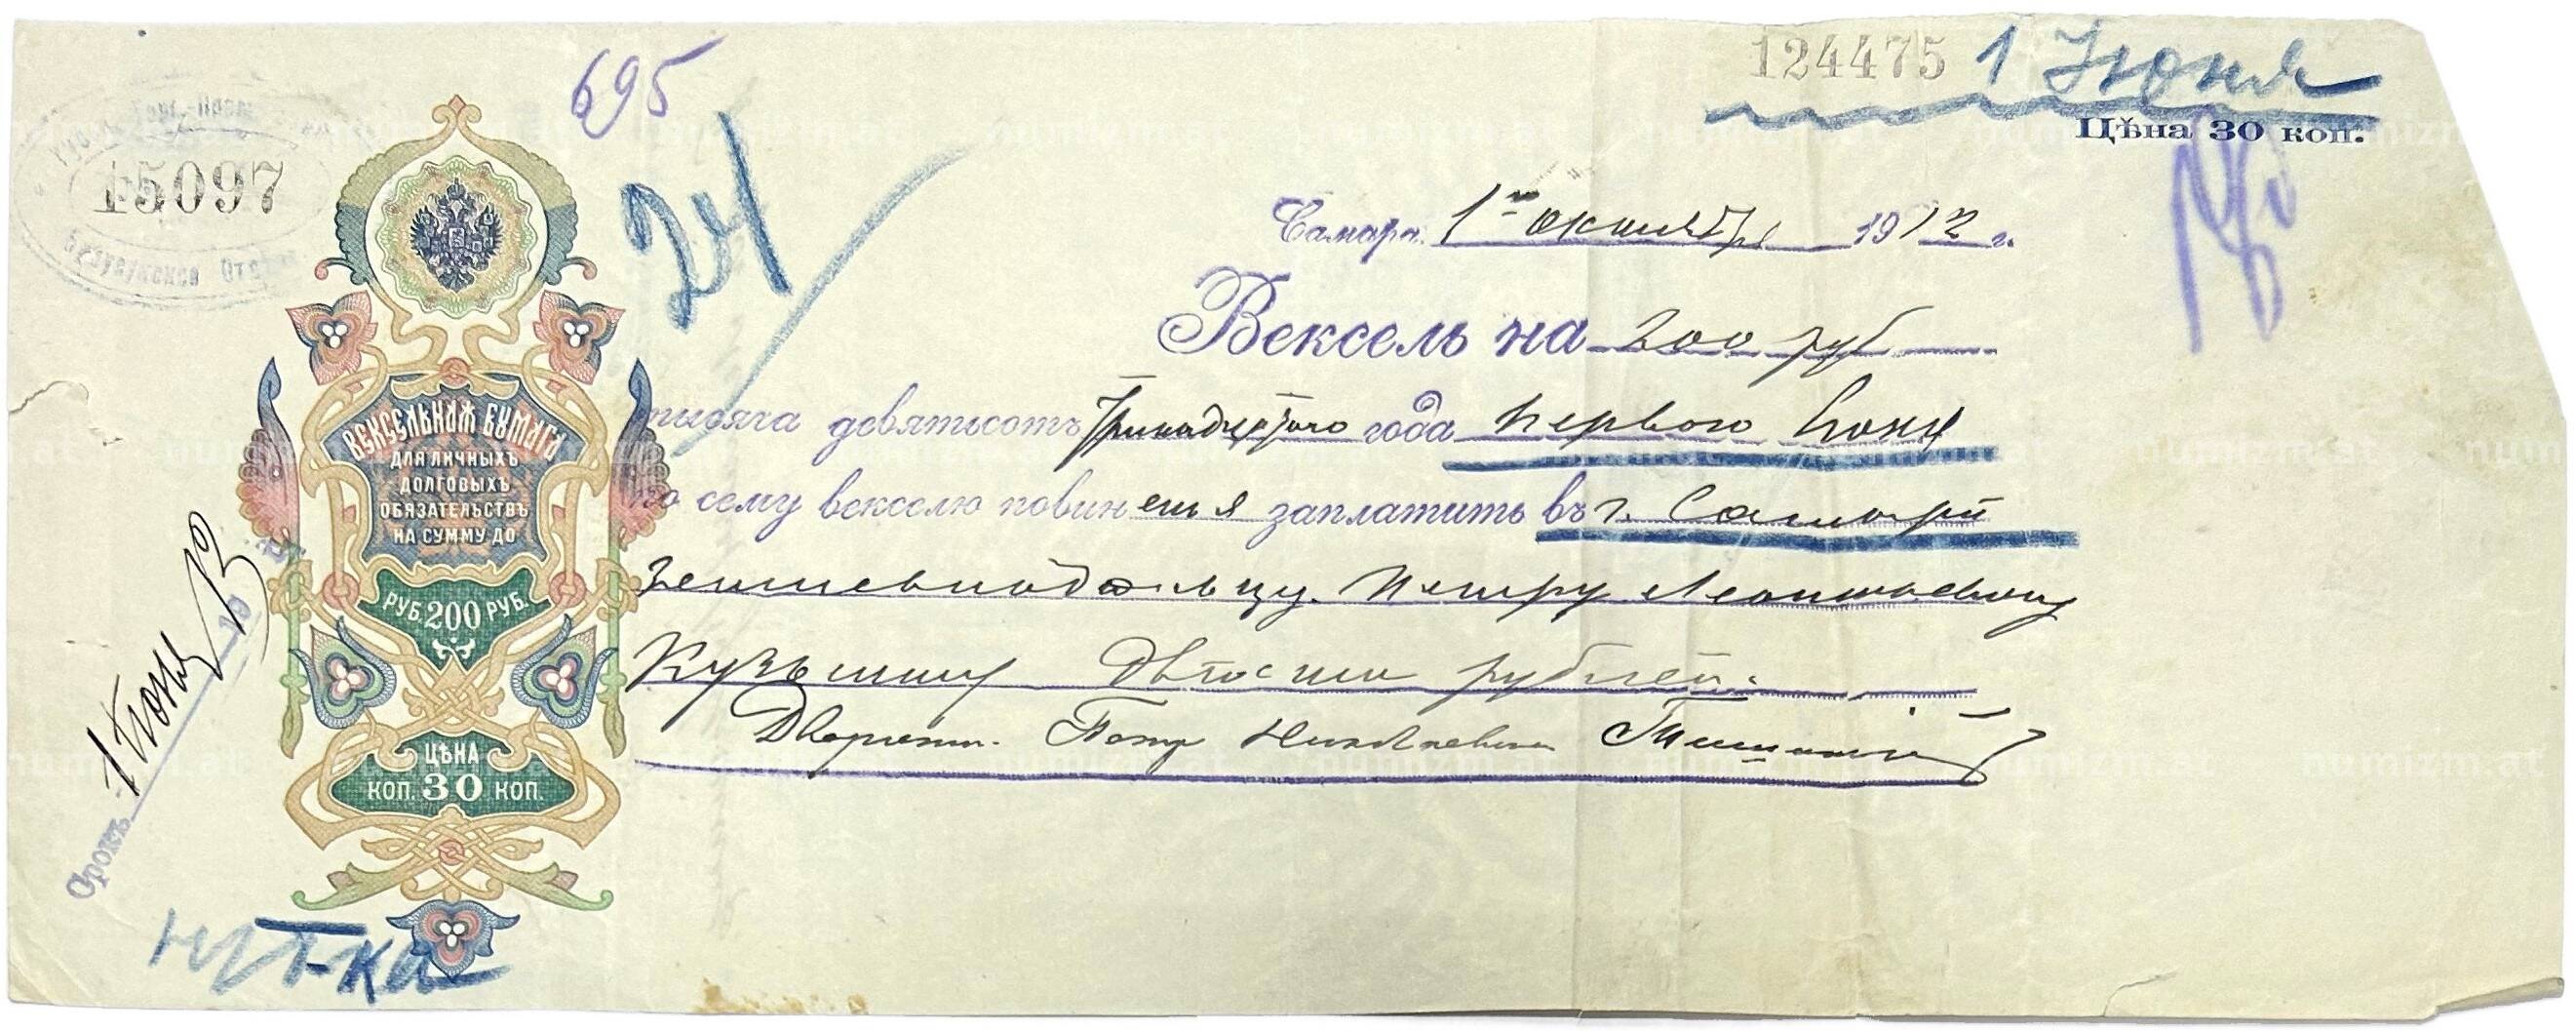 124475 1 Июня
695
Цѣна 30 коп.
24
15097
Бузулукское Отд
Самара 1го октября 1912 г.
Вексель на 200 руб
тысяча девятьсотъ тринадцатого года первого Июня
по сему векселю повиненъ я заплатить въ г. Самарѣ
Землевладельцу Петру Леонтьевичу
Кузьмину Двѣсти рублей.
Дворянин Петр Николаевич
ВЕКСЕЛЬНАЯ БУМАГА
ДЛЯ ЛИЧНЫХЪ
ДОЛГОВЫХЪ
ОБЯЗАТЕЛЬСТВЪ
НА СУММУ ДО
РУБ. 200 РУБ.
ЦѢНА
КОП. 30 КОП.
Срокъ 1 Июня 13
numizm.at